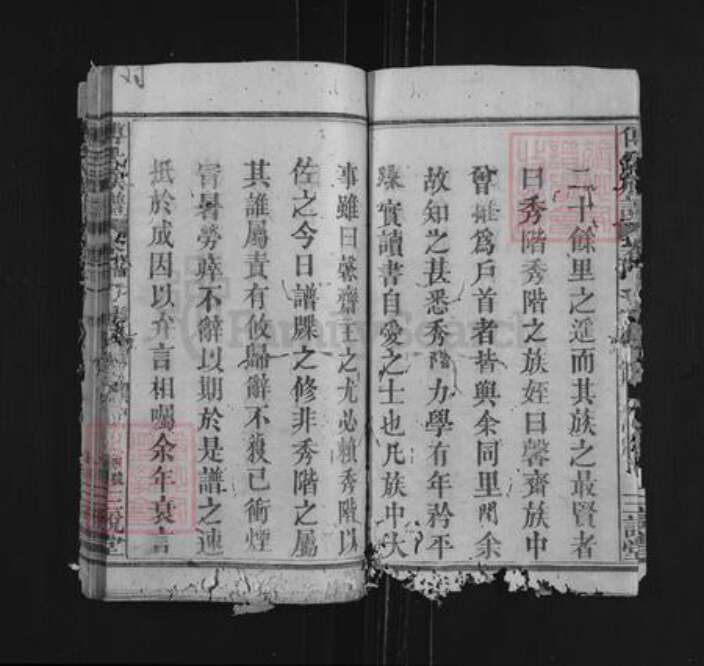 二十餘里之遥而其族之最賢者
曰秀階秀階之族姪曰馨齋族中
曾推爲戶首者皆與余同里閈余
故知之甚悉秀階力學有年矜平
躁實讀書自愛之士也凡族中大
事雖曰馨齋主之尤必賴秀階以
佐之今日譜牒之修非秀階之屬
其誰屬責有攸歸辭不獲已衝煙
冒暑勞瘁不辭以期於是譜之速
抵於成因以弁言相囑余年衰
FamilySearch